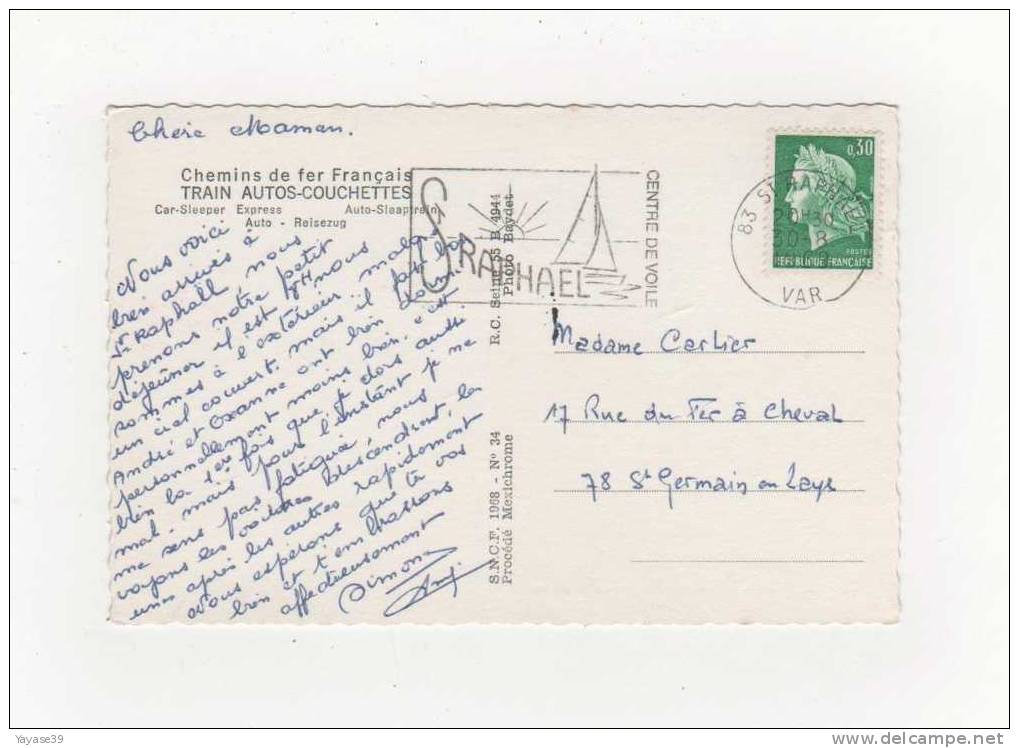 Chère Maman.
Chemins de fer Français
TRAIN AUTOS-COUCHETTES
Car-Sleeper Express Auto-Slaaptrein
Auto - Reisezug
Nous voici
bien arrivés à
St Raphaël, nous
prenons notre petit
déjeuner il est 8H nous
sommes à l'extérieur malgré
un ciel couvert. mais il fait bon
André et Oxanne ont bien dormi
personnellement moins bien. c'est
bien la 1ère fois que je dors aussi
mal. mais pour l'instant je ne
me sens pas fatiguée, nous
voyons les voitures descendrent, les
unes après les autres rapidement
Nous espérons que tu vas
bien et t'embrassons
affectueusement
Simone
R.C. Seine 55 B 4944
Photo Baydet
S.N.C.F. 1968 - No 34
Procédé Mexichrome
ST RAPHAEL
CENTRE DE VOILE
83 ST RAPHAEL
20H30
30-8
VAR
0,30
POSTES
REPUBLIQUE FRANÇAISE
Madame Carlier
17 Rue du Fer à Cheval
78 St Germain en Laye
Yayase39
www.delcampe.net